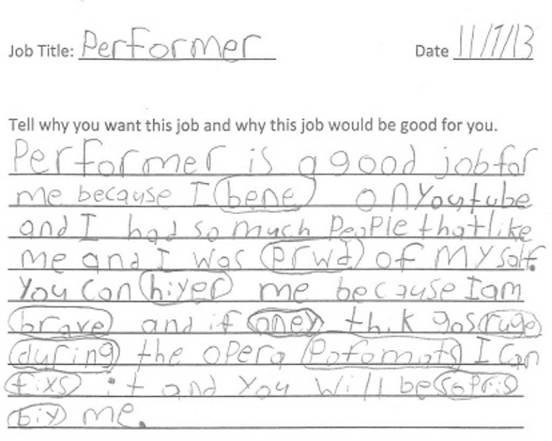 Job Title: Performer Date 11/7/13
Tell why you want this job and why this job would be good for you.
Performer is a good job for
me because I bene on Youtube
and I had so much PeoPle that like
me and I was prwd of my salf.
You Can hiyer me because I am
brave and if aney thik gos ruge
during the opera Pofomats I Can
fixs it and You Will be sopris
biy me.